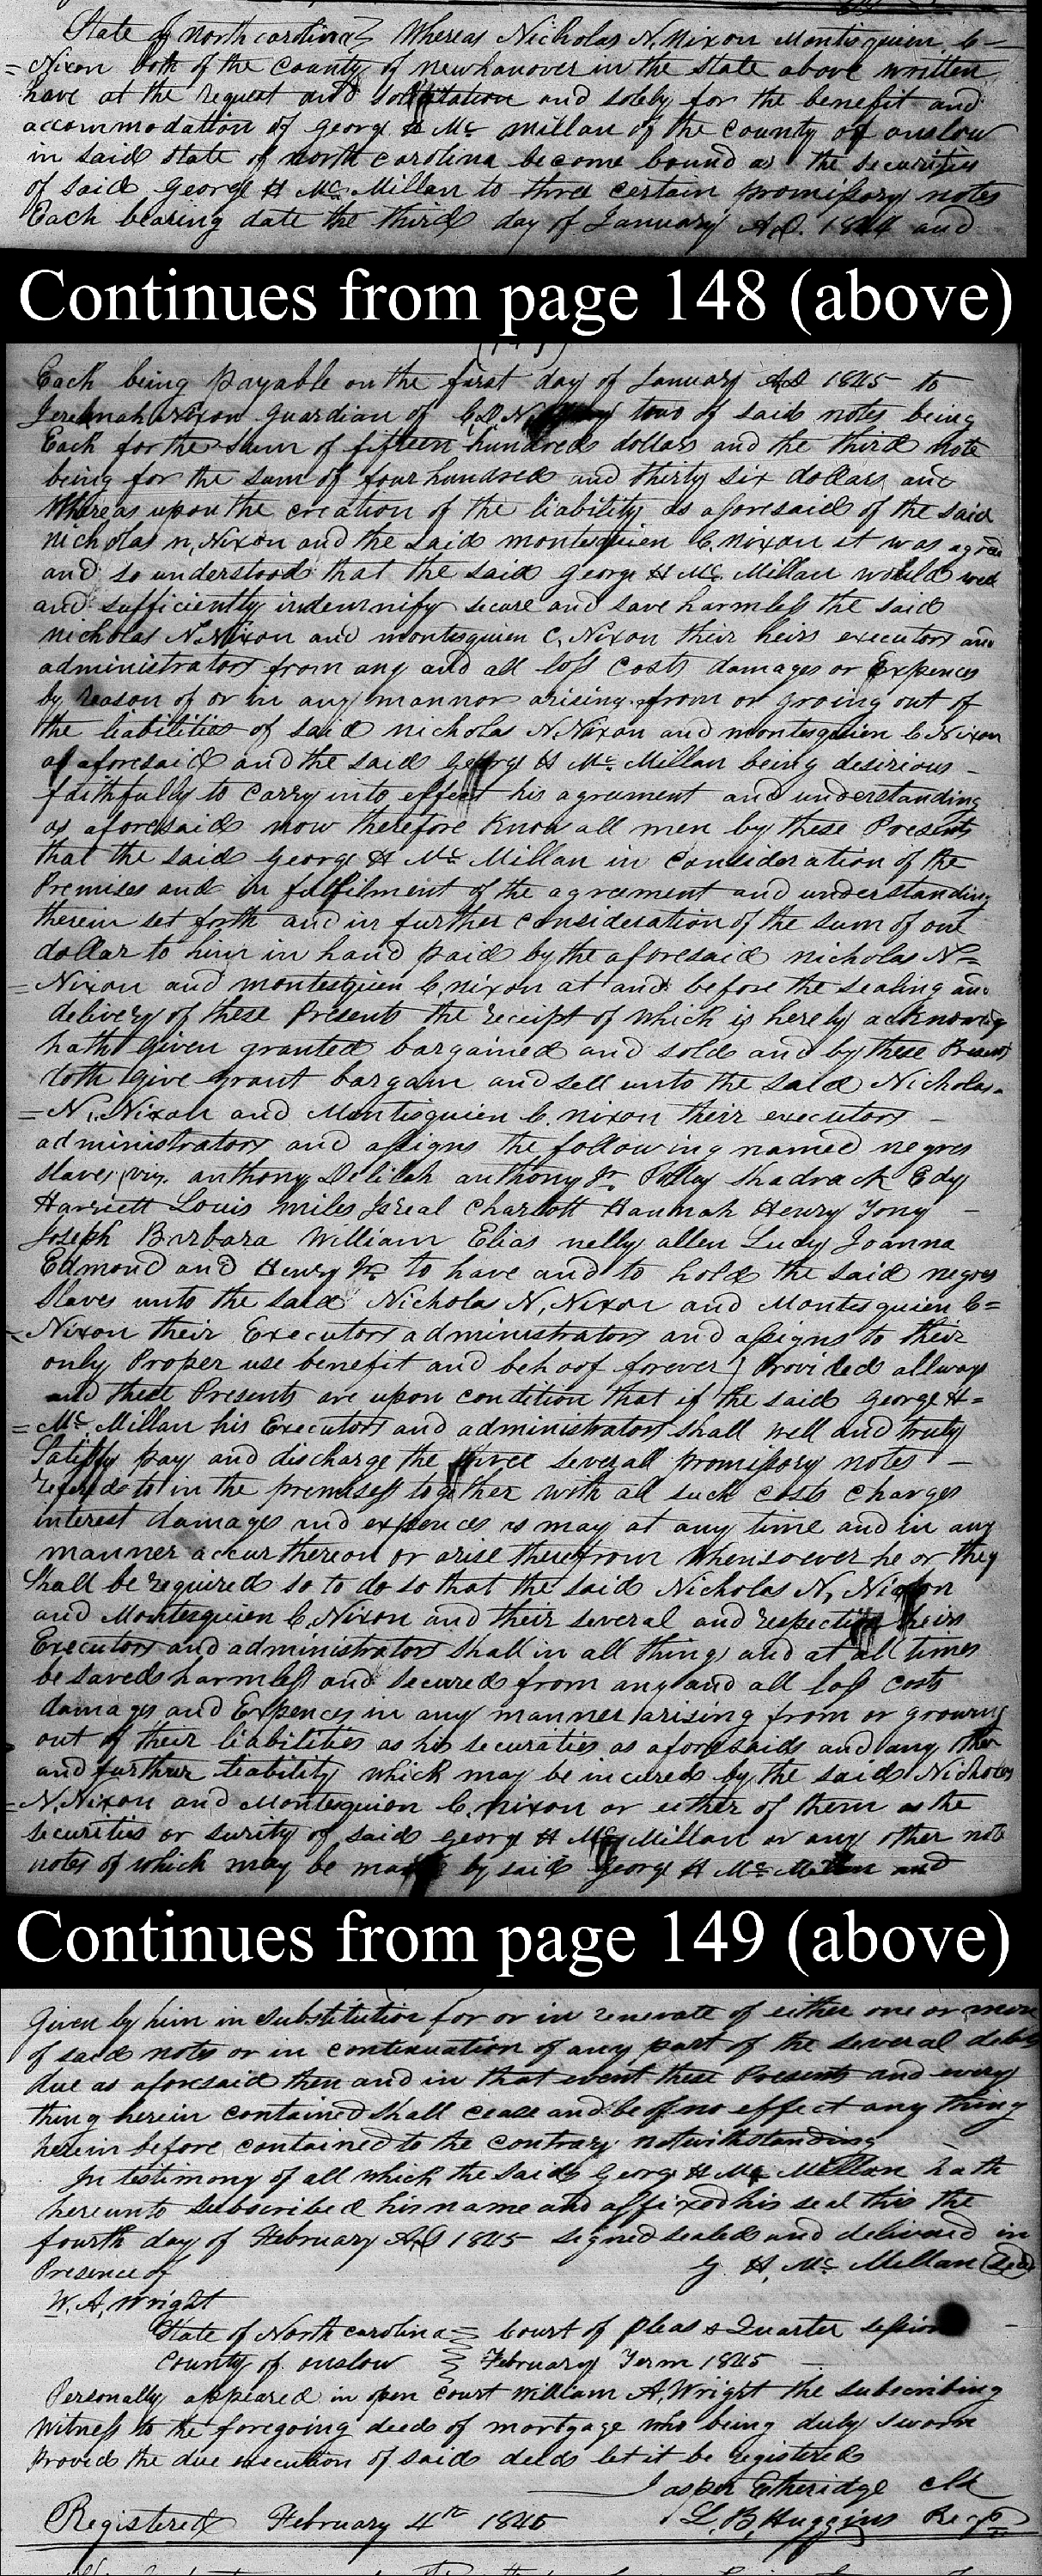 State of North carolina} Whereas Nicholas N. Nixon Montisquien C-
=Nixon both of the County of newhanover in the State above written
have at the request and solicitation and solely for the benefit and
accommodation of George H Mc millan of the county of onslow
in said state of north carolina become bound as the securities
of said George H Mc Millan to three certain promissory notes
Each bearing date the third day of January A.D. 1844 and
Continues from page 148 (above)
Each being payable on the first day of January AD 1845 to
Jeremiah Nixon guardian of C D N two of said notes being
Each for the sum of fifteen hundred dollars and the third note
being for the sum of four hundred and thirty six dollars and
Whereas upon the creation of the liability as aforesaid of the said
nicholas n, Nixon and the said montesquien C. nixon it was agreed
and so understood that the said George H Mc Millan would well
and sufficiently indemnify secure and save harmless the said
nicholas N. Nixon and montesquien C, Nixon their heirs executors and
administrators from any and all loss costs damages or Expences
by reason of or in any mannor arising from or groing out of
the liabilities of said nicholas N. Nixon and montesquien C Nixon
as aforesaid and the said George H Mc Millan being desirious -
faithfully to carry into effect his agreement and understanding
as aforesaid now therefore Know all men by these Presents
that the said George H Mc Millan in Consideration of the
Premises and in fulfilment of the agreement and understanding
therein set forth and in further consideration of the sum of one
dollar to him in hand paid by the aforesaid nicholas N=
=Nixon and montesquien C. nixon at and before the sealing and
delivery of these Presents the receipt of which is hereby acknowg
hath given granted bargained and sold and by these Presents
doth give grant bargain and sell unto the said Nicholas-
=N. Nixon and Montisquien C. nixon their executors -
administrators and assigns the following named negros
slaves viz. anthony Delilah anthony Jr. Polley Shadrack Edy
Harriett Louis miles Isreal Charlott Hannah Henry Tony -
Joseph Barbara William Elias nelly allen Lucy Joanna
Edmond and Henry Jr. to have and to hold the said negros
Slaves unto the said Nicholas N, Nixon and Montesquien C=
=Nixon their Executors administrators and assigns to their
only Proper use benefit and behoof forever} Provided allways
and these Presents are upon condition that if the said George H=
=Mc. Millan his Executors and administrators shall well and truly
Satisfy pay and discharge the three severall promissory notes -
refered to in the premises together with all such costs charges
interest damages and expences as may at any time and in any
manner accur thereon or arise therefrom whensoever he or they
Shall be required so to do so that the said Nicholas N, Nixon
and Montesquien C, Nixon and their several and respective heirs
Executors and administrators shall in all things and at all times
be saved harmless and secured from any and all loss costs
damages and Expences in any manner arising from or growing
out of their liabilities as his securaties as aforesaid and any other
and further liability which may be incured by the said Nicholas
=N. Nixon and Montesquien C. nixon or either of them as the
securities or surity of said George H Mc Millan or any other note
notes of which may be made by said George H Mc Millan and
Continues from page 149 (above)
Given by him in substitution for or in renewate of either one or more
of said notes or in continuation of any part of the several debts
due as aforesaid then and in that event these Presents and every
thing herein contained shall cease and be of no effect any thing
herein before contained to the contrary notwithstanding
In testimony of all which the said George H Mc Millan hath
hereunto subscribed his name and affixed his seal this the
fourth day of February AD 1845 signed sealed and delivered in
Presence of G. H, Mc Millan (seal)
W. A. Wright
State of North carolina Court of Pleas & Quarter session -
County of onslow February Term 1845 -
Personally appeared in open Court William A, Wright the subscribing
Witness to the foregoing deeds of mortgage who being duly sworn
Proved the due execution of said deeds let it be registered
Jasper Etheridge clk
Registered February 4th 1845 L. B, Huggins Regr